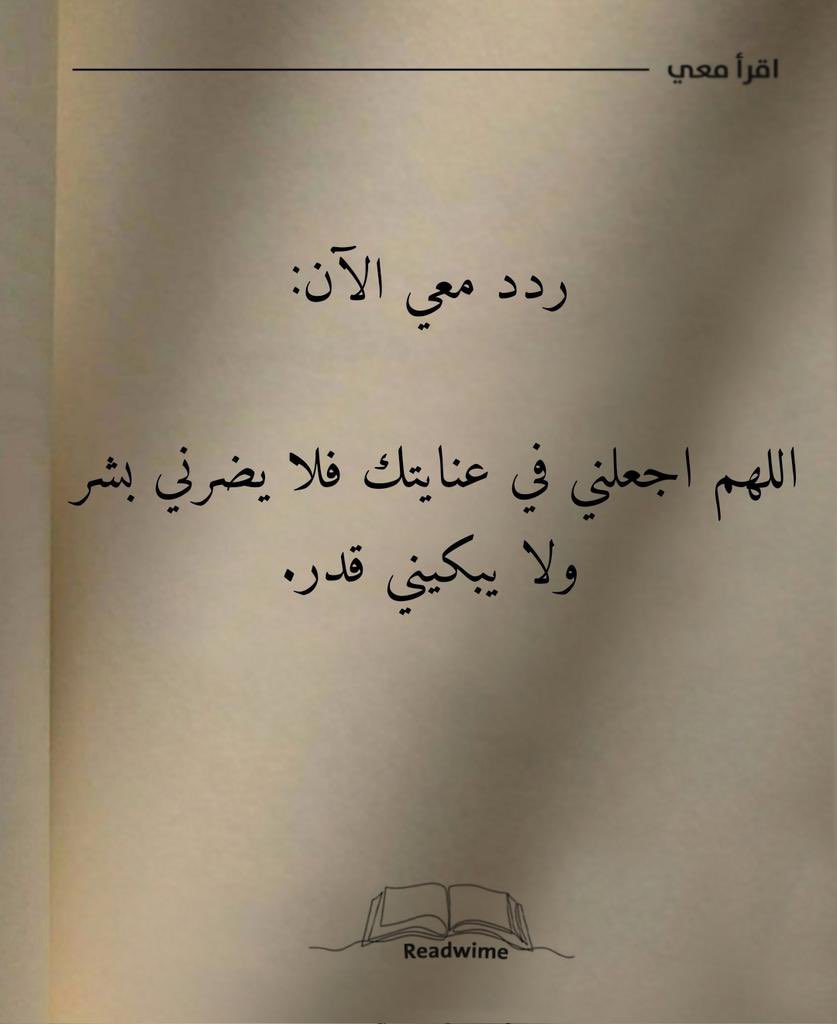 اقرأ معي
ردد معي الآن:
اللهم اجعلني في عنايتك فلا يضرني بشر
ولا يبكيني قدر.
Readwime